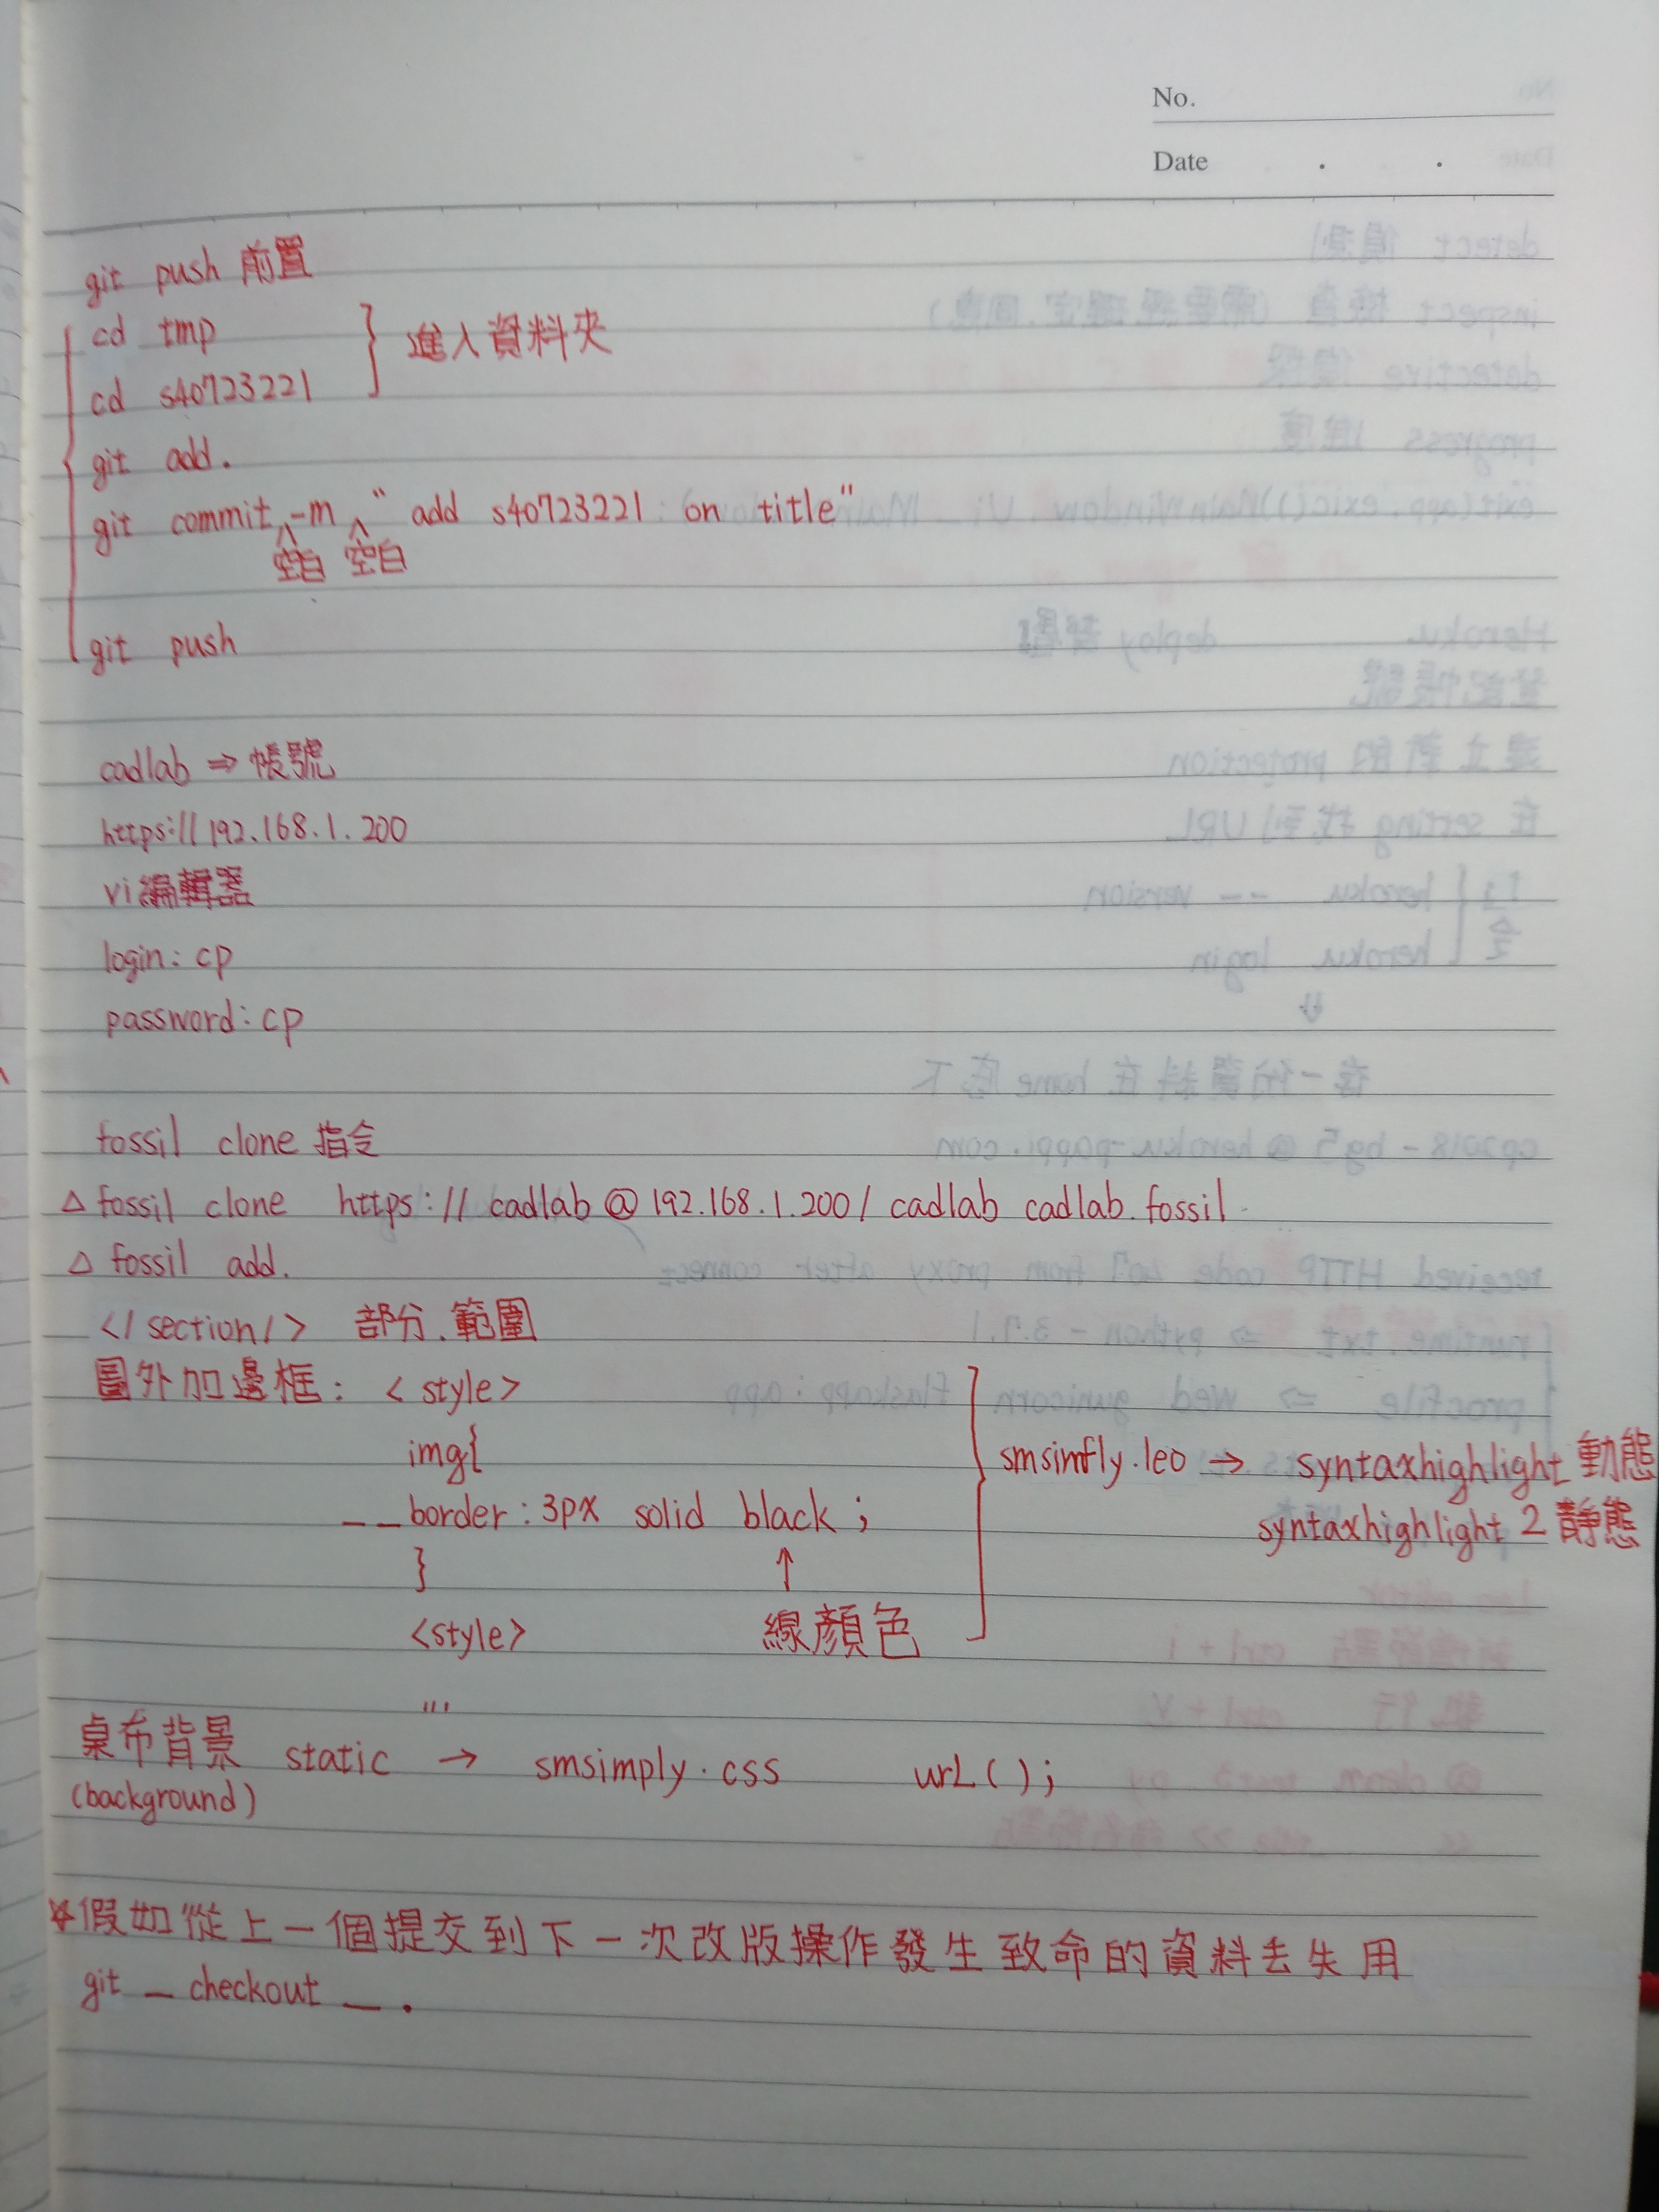 No.
Date . .
git push 前置
cd tmp
cd s40723221
進入資料夾
git add .
git commit -m " add s40723221 on title"
空白 空白
git push
cadlab ⇒ 帳號
https://192.168.1.200
vi編輯器
login: cp
password: cp
fossil clone 指令
△ fossil clone https://cadlab@192.168.1.200/cadlab cadlab.fossil
△ fossil add .
</section/> 部分.範圍
圖外加邊框: <style>
img{
__border: 3px solid black ;
}
↑
<style>
線顏色
smsimfly.leo → syntaxhighlight 動態
syntaxhighlight 2 靜態
...
桌布背景 static → smsimply.css urL();
(background)
*假如從上一個提交到下一次改版操作發生致命的資料丟失用
git _ checkout _ .